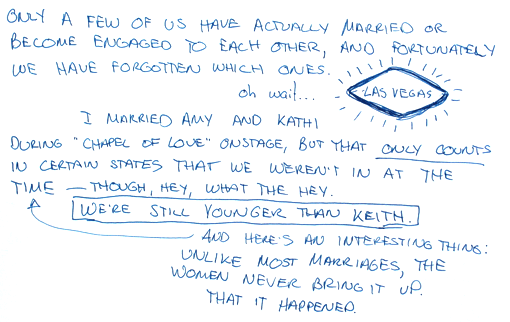 ONLY A FEW OF US HAVE ACTUALLY MARRIED OR
BECOME ENGAGED TO EACH OTHER, AND FORTUNATELY
WE HAVE FORGOTTEN WHICH ONES.
oh wait...
LAS VEGAS
I MARRIED AMY AND KATHI
DURING "CHAPEL OF LOVE" ONSTAGE, BUT THAT ONLY COUNTS
IN CERTAIN STATES THAT WE WEREN'T IN AT THE
TIME — THOUGH, HEY, WHAT THE HEY.
WE'RE STILL YOUNGER THAN KEITH.
AND HERE'S AN INTERESTING THING:
UNLIKE MOST MARRIAGES, THE
WOMEN NEVER BRING IT UP.
THAT IT HAPPENED.